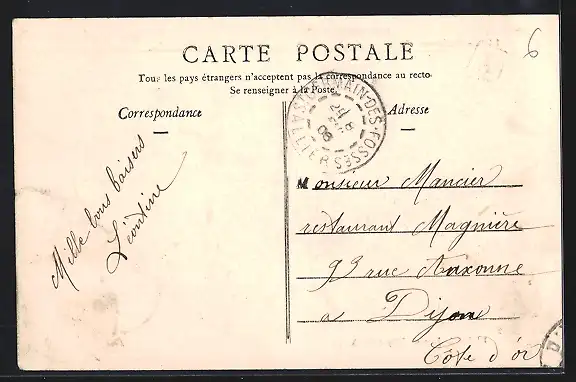 CARTE POSTALE
Tous les pays étrangers n'acceptent pas la correspondance au recto
Se renseigner à la Poste
6
Correspondance
Adresse
ST GERMAIN-DES-FOSSÉS
ALLIER
24
08
Mille bons baisers
Léontine
Monsieur Mancier
restaurant Magnière
93 rue Auxonne
a Dijon
Côte d'or